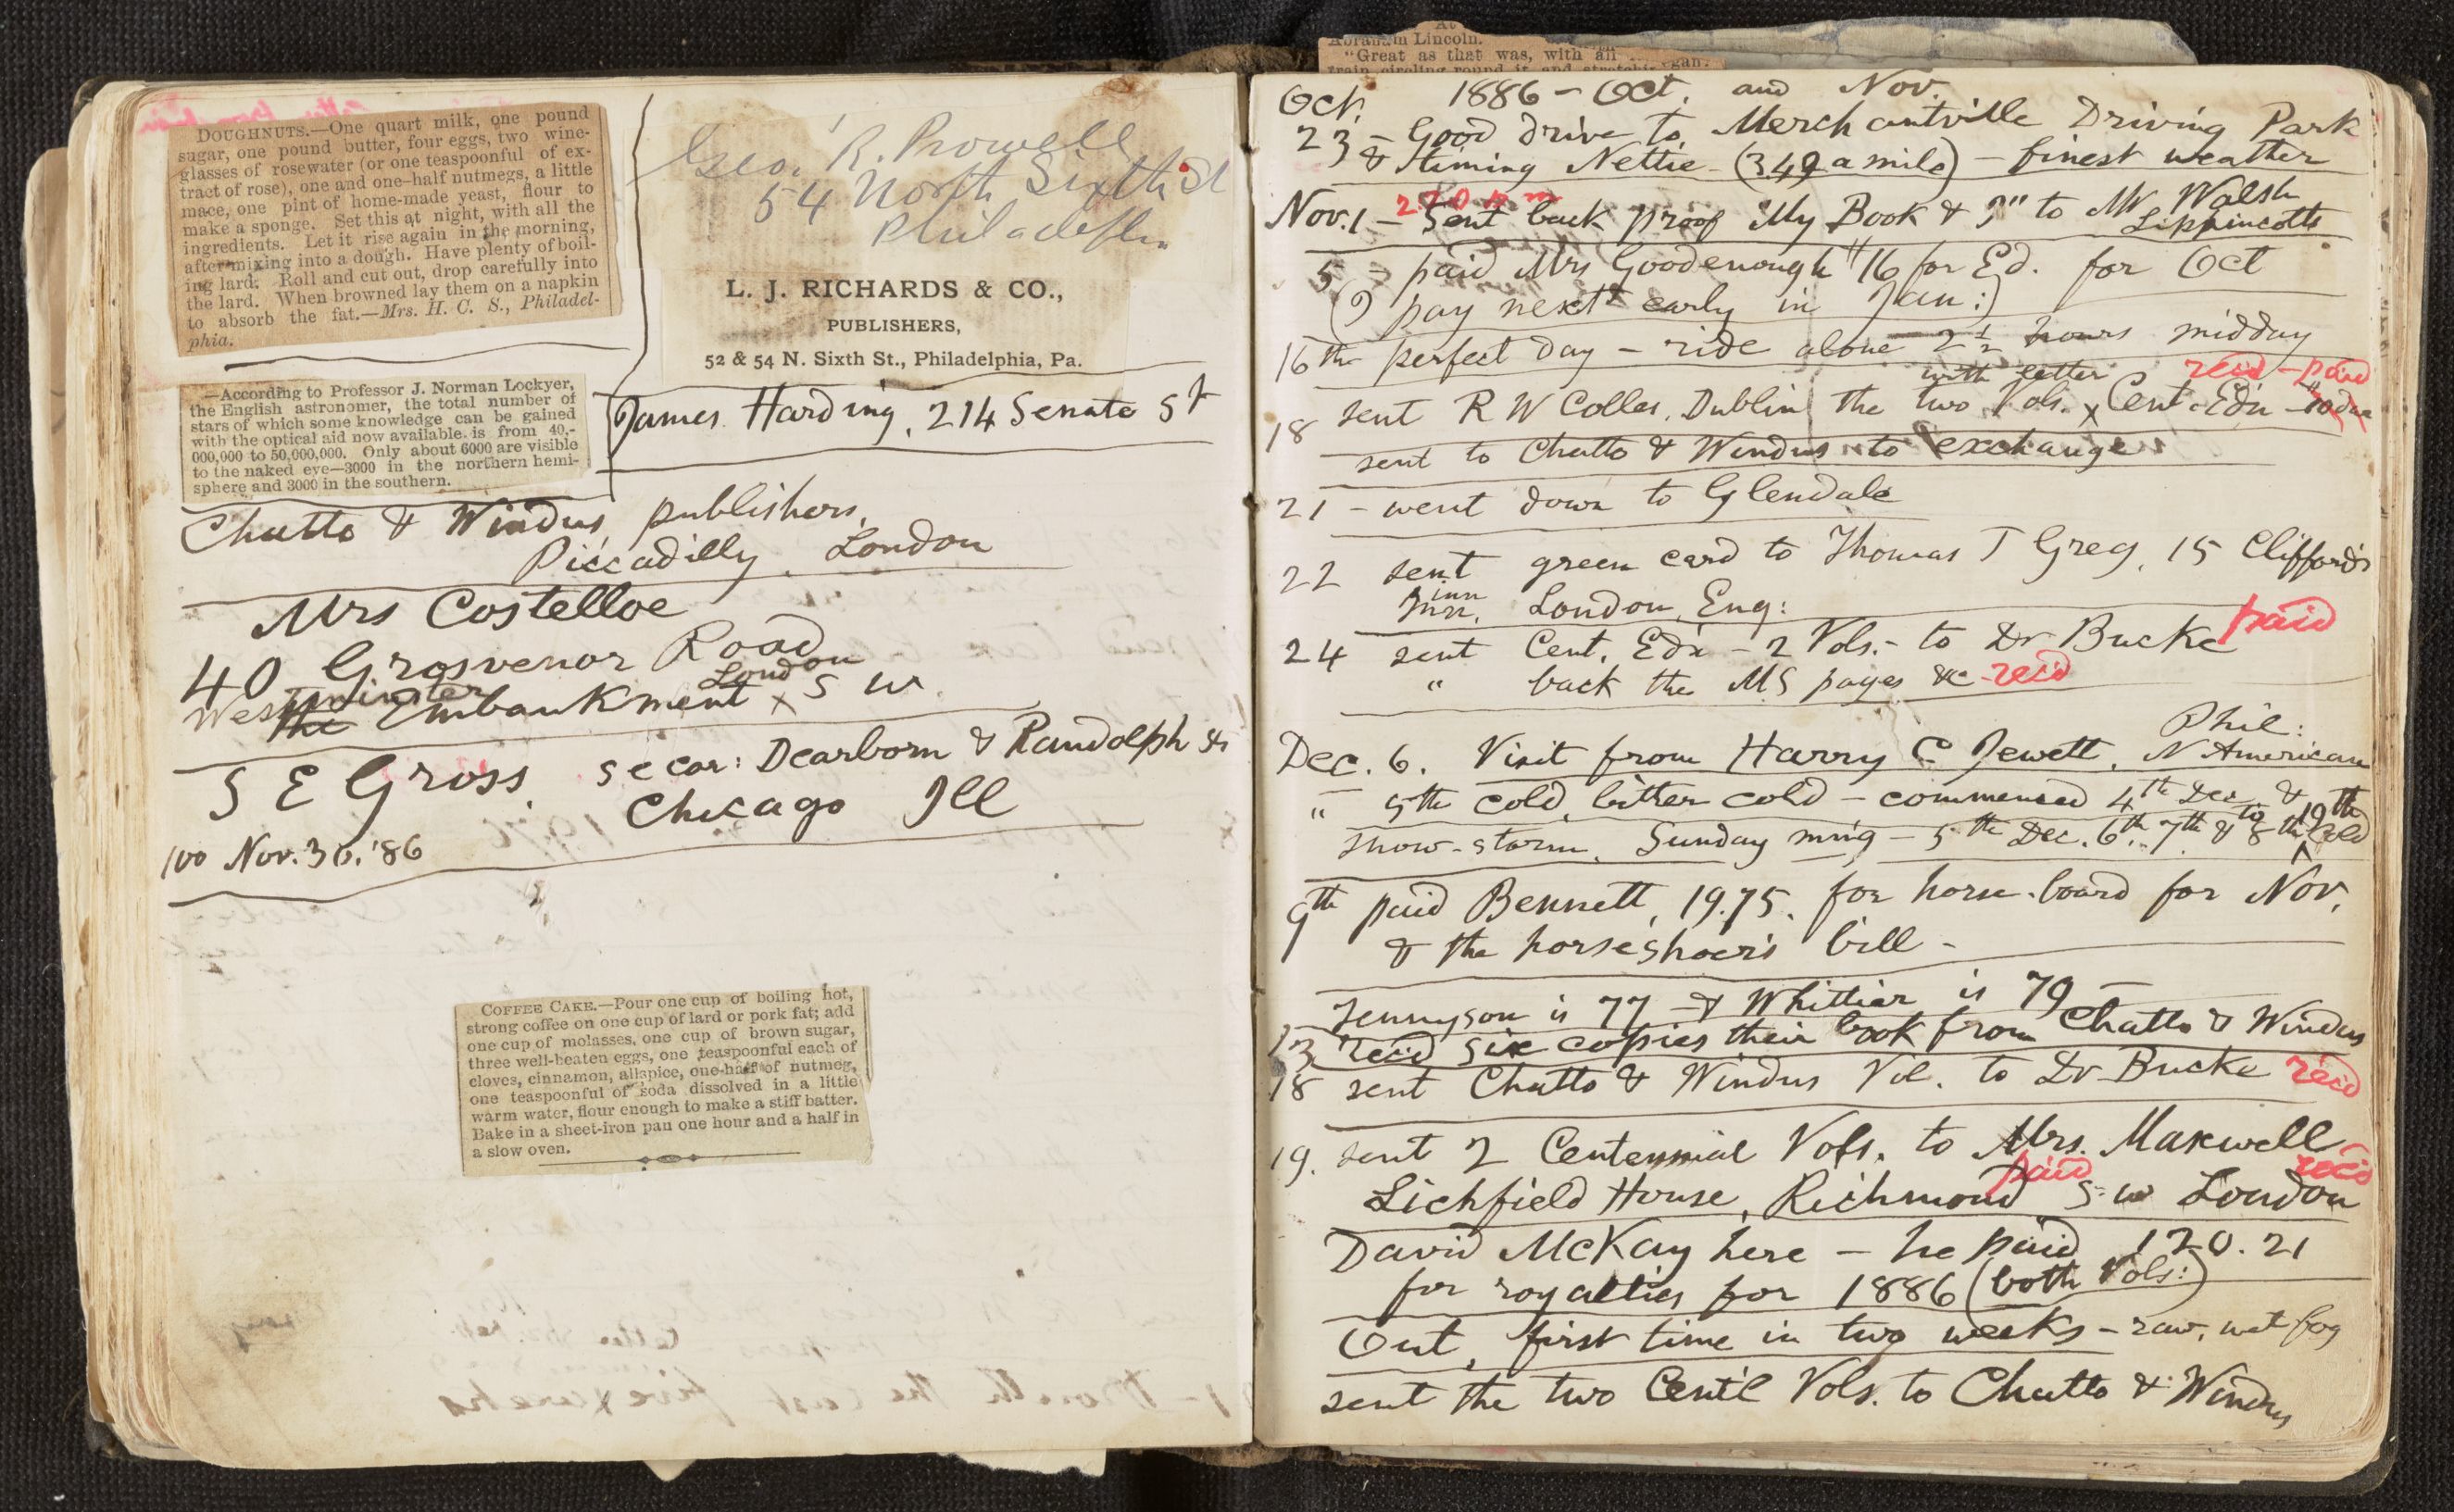 DOUGHNUTS.—One quart milk, one pound
sugar, one pound butter, four eggs, two wine-
glasses of rosewater (or one teaspoonful of ex-
tract of rose), one and one-half nutmegs, a little
mace, one pint of home-made yeast, flour to
make a sponge. Set this at night, with all the
ingredients. Let it rise again in the morning,
after mixing into a dough. Have plenty of boil-
ing lard. Roll and cut out, drop carefully into
the lard. When browned lay them on a napkin
to absorb the fat.—Mrs. H. C. S., Philadel-
phia.
Geo. R. Prowell
54 North Sixth St
Philadelphia
L. J. RICHARDS & CO.,
PUBLISHERS,
52 & 54 N. Sixth St., Philadelphia, Pa.
—According to Professor J. Norman Lockyer,
the English astronomer, the total number of
stars of which some knowledge can be gained
with the optical aid now available is from 40,-
000,000 to 50,000,000. Only about 6000 are visible
to the naked eye—3000 in the northern hemi-
sphere and 3000 in the southern.
James Harding, 214 Senate St
Chatto & Windus publishers,
Piccadilly, London
Mrs Costelloe
40 Grosvenor Road
London
Westminster
the Embankment x S W
S E Gross secor: Dearborn & Randolph sts
Chicago Ill
100 Nov. 30, '86
COFFEE CAKE.—Pour one cup of boiling hot,
strong coffee on one cup of lard or pork fat; add
one cup of molasses, one cup of brown sugar,
three well-beaten eggs, one teaspoonful each of
cloves, cinnamon, allspice, one-half of nutmeg,
one teaspoonful of soda dissolved in a little
warm water, flour enough to make a stiff batter.
Bake in a sheet-iron pan one hour and a half in
a slow oven.
Abraham Lincoln.
"Great as that was, with all
train circling round it and
1886 - Oct. and Nov.
Oct.
23 - Good drive to Merchantville Driving Park
& timing Nettie - (349 a mile) - finest weather
Nov. 1 - Sent back proof My Book & I" to Mr Walsh
Lippincotts
5 - paid Mrs Goodenough $16 for Ed. for Oct
(I pay next early in Jan:)
16th perfect day - ride alone 2½ hours midday
with letter rec'd - paid
18 sent R W Colles, Dublin the two Vols. x Cent. Edn - $10 due
sent to Chatto & Windus to exchange
21 - went down to Glendale
22 sent green card to Thomas T Greg, 15 Clifford's
inn
Inn, London, Eng:
24 sent Cent. Edn - 2 Vols. - to Dr Bucke paid
" back the MS pages &c - rec'd
Phil:
Dec. 6. Visit from Harry C Jewett, N American
" 5th cold, bitter cold - commenced 4th Dec &
to 10th
snow-storm. Sunday m'n'g - 5th Dec. 6th, 7th & 8th cold
9th paid Bennett, 19.75. for horse-board for Nov.
& the horseshoer's bill -
Tennyson is 77 - & Whittier is 79 -
13 rec'd six copies their book from Chatto & Windus
18 sent Chatto & Windus Vol. to Dr Bucke rec'd
19. sent 2 Centennial Vols. to Mrs. Maxwell
paid rec'd
Lichfield House, Richmond S w London
David McKay here - he paid 120.21
for royalties for 1886 (both Vols:)
Out, first time in two weeks - raw, wet fog
sent the two Cent'l Vols. to Chatto & Windus